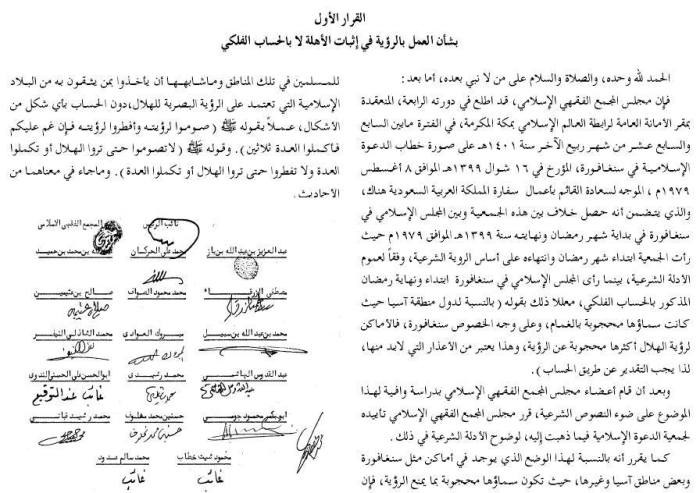 القرار الأول
بشأن العمل بالرؤية في إثبات الأهلة لا بالحساب الفلكي
الحمد لله وحده، والصلاة والسلام على من لا نبي بعده، أما بعد:
فإن مجلس المجمع الفقهي الإسلامي، قد اطلع في دورته الرابعة، المنعقدة
بمقر الأمانة العامة لرابطة العالم الإسلامي بمكة المكرمة، في الفترة مابين السابع
والسابع عشر من شهر ربيع الآخر سنة ١٤٠١هـ على صورة خطاب الدعوة
الإسلامية في سنغافورة، المؤرخ في ١٦ شوال ١٣٩٩هـ الموافق ٨ أغسطس
١٩٧٩م، الموجه لسعادة القائم بأعمال سفارة المملكة العربية السعودية هناك،
والذي يتضمن أنه حصل خلاف بين هذه الجمعية وبين المجلس الإسلامي في
سنغافورة في بداية شهر رمضان ونهايته سنة ١٣٩٩هـ الموافق ١٩٧٩م حيث
رأت الجمعية ابتداء شهر رمضان وانتهاءه على أساس الروية الشرعية، وفقاً لعموم
الادلة الشرعية، بينما رأى المجلس الإسلامي في سنغافورة ابتداء ونهاية رمضان
المذكور بالحساب الفلكي، معللا ذلك بقوله (بالنسبة لدول منطقة آسيا حيث
كانت سماؤها محجوبة بالغمام، وعلى وجه الخصوص سنغافورة، فالأماكن
لرؤية الهلال أكثرها محجوبة عن الرؤية، وهذا يعتبر من الأعذار التي لابد منها،
لذا يجب التقدير عن طريق الحساب).
وبعد أن قام أعضاء مجلس المجمع الفقهي الإسلامي بدراسة وافية لهذا
الموضوع على ضوء النصوص الشرعية، قرر مجلس المجمع الفقهي الإسلامي تأييده
لجمعية الدعوة الإسلامية فيما ذهبت إليه، لوضوح الأدلة الشرعية في ذلك.
كما يقرر أنه بالنسبة لهذا الوضع الذي يوجد في أماكن مثل سنغافورة
وبعض مناطق آسيا وغيرها، حيث تكون سماؤها محجوبة بما يمنع الرؤية، فإن
للمسلمين في تلك المناطق وماشابهها أن يأخذوا بمن يثقون به من البلاد
الإسلامية التي تعتمد على الرؤية البصرية للهلال، دون الحساب بأي شكل من
الأشكال، عملاً بقوله ﷺ (صوموا لرؤيته وأفطروا لرؤيته فإن غم عليكم
فأكملوا العدة ثلاثين). وقوله ﷺ (لاتصوموا حتى تروا الهلال أو تكملوا
العدة ولا تفطروا حتى تروا الهلال أو تكملوا العدة). وماجاء في معناهما من
الأحاديث.
نائب الرئيس
المجمع الفقهي الاسلامي
عبد العزيز بن عبد الله بن باز
محمد علي الحركان
عبد الله بن محمد بن حميد
محمد محمود الصواف
صالح بن عثيمين
محمد بن عبد الله بن سبيل
مبروك العوادي
محمد الشاذلي النيفر
عبد القدوس الهاشمي
محمد رشيدي
ابو الحسن علي الحسني الندوي
غائب عند التوقيع
ابو بكر محمود جومي
حسنين محمد مخلوف
محمد رشيد قباني
محمود شيت خطاب
محمد سالم عدود
غائب
غائب